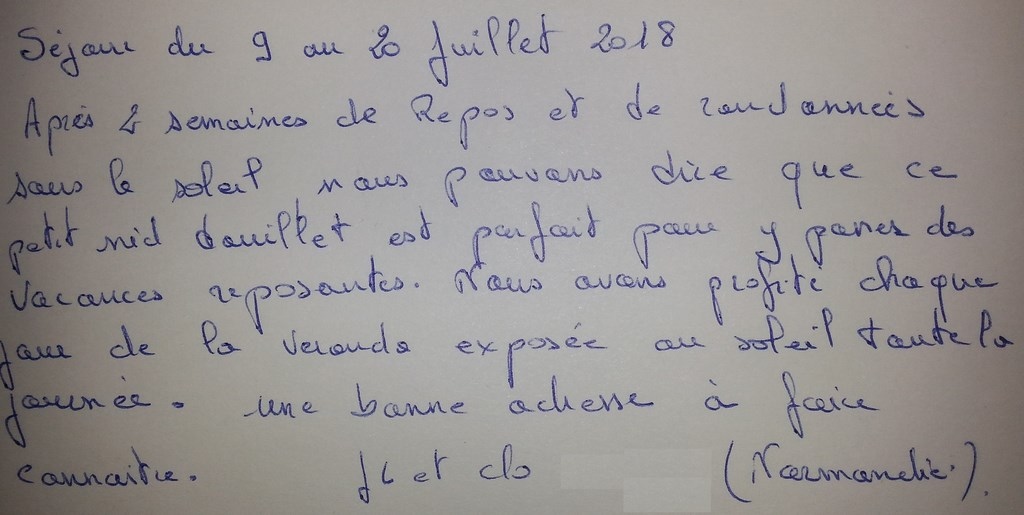 Séjour du 9 au 20 Juillet 2018
Après 2 semaines de Repos et de randonnées
sous le soleil nous pouvons dire que ce
petit nid douillet est parfait pour y passer des
vacances reposantes. Nous avons profité chaque
jour de la veranda exposée au soleil toute la
journée. une bonne adresse à faire
connaitre. JL et Clo (Normandie).